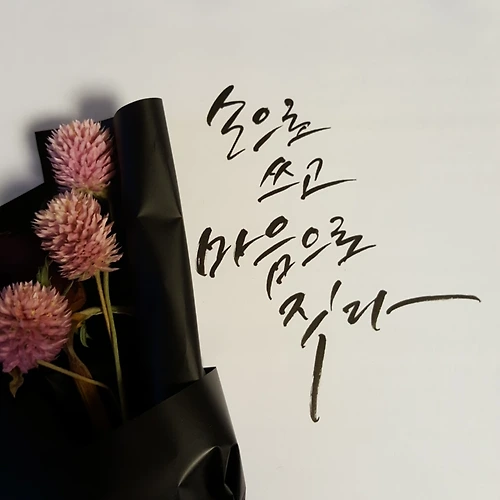 손으로
쓰고
마음으로
짓다